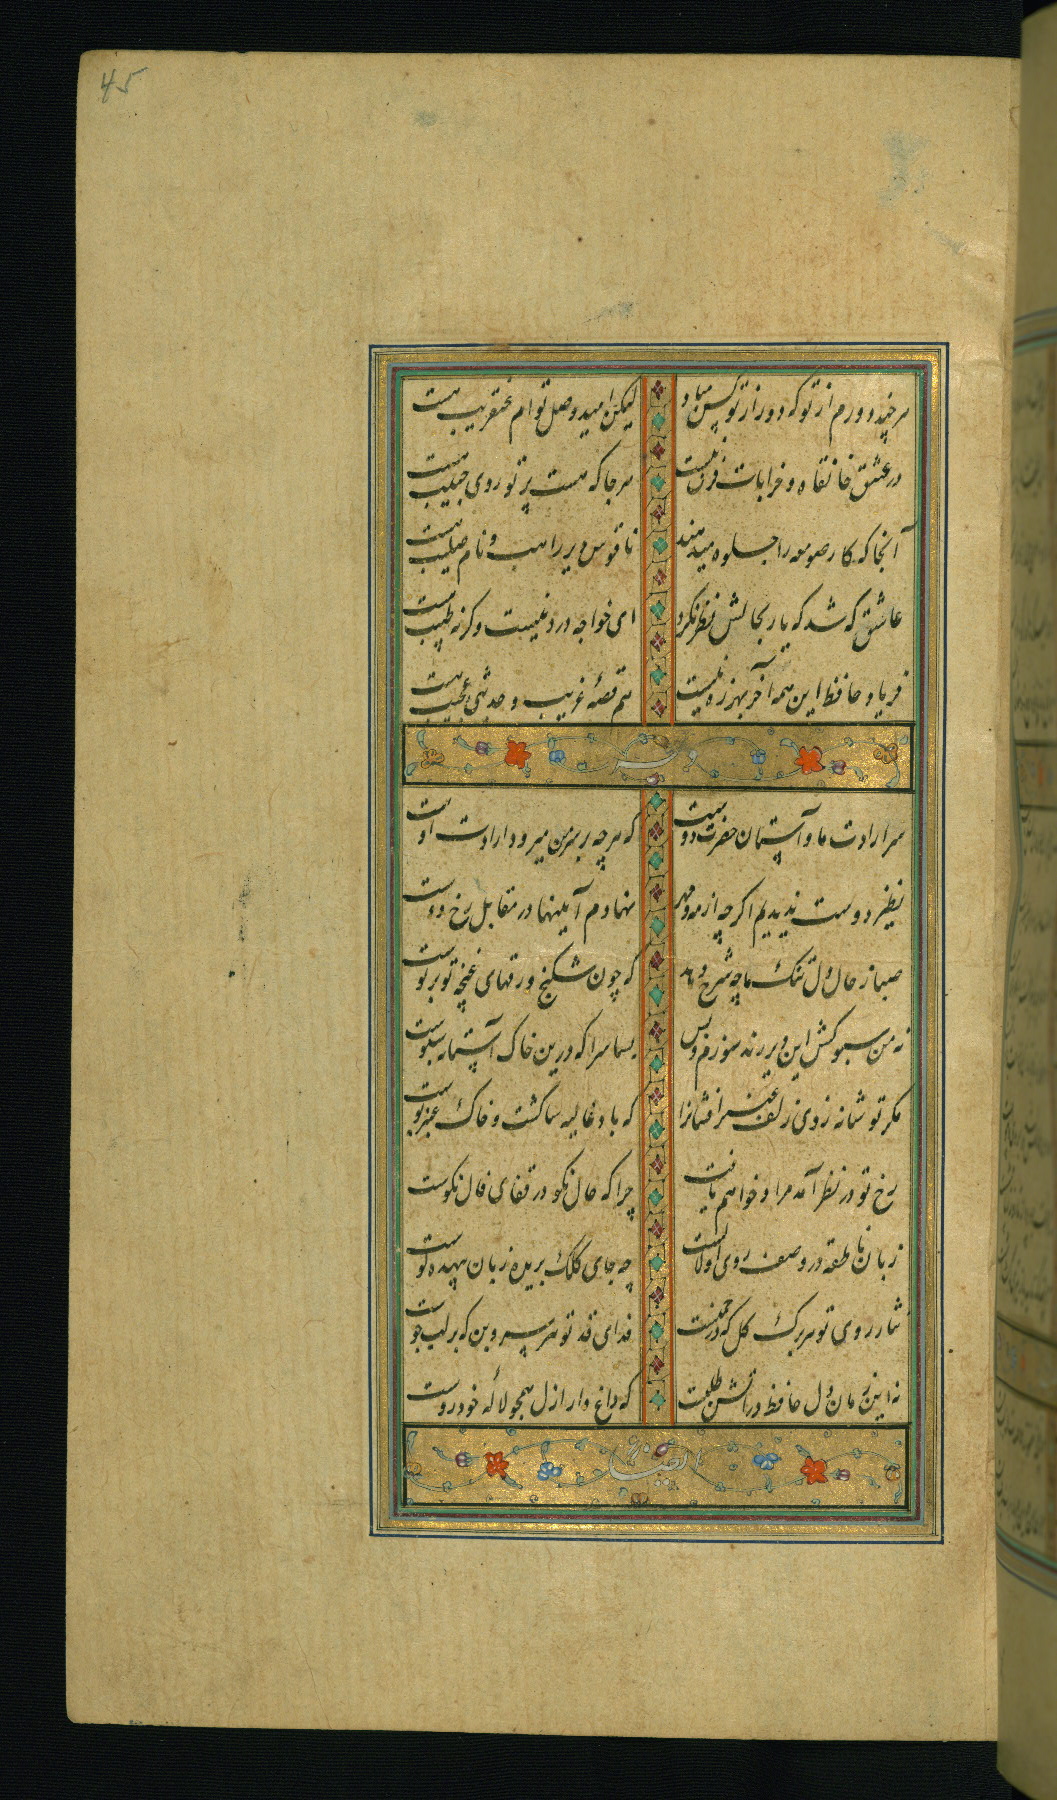 45
هر چند دورم از تو که دور از تو کس مباد لیکن امید وصل توام عنقریب هست
در عشق خانقاه و خرابات فرق نیست هر جا که هست پرتو روی حبیب هست
آنجا که کار صومعه را جلوه میدهند ناقوس دیر راهب و نام صلیب هست
عاشق که شد که یار بحالش نظر نکرد ای خواجه درد نیست وکرنه طبیب هست
فریاد حافظ این همه آخر بهرزه نیست هم قصهٔ غریب و حدیثی عجیب هست
سر ارادت ما و آستان حضرت دوست که هر چه بر سر من میرود ارادت اوست
نظیر دوست ندیدیم اکر چه از مه و مهر نهادم آینها در مقابل رخ دوست
صبا ز حال دل تنک ما چه شرح دهد که چون شکنج ورقهای غنچه تو بر توست
نه من سبوکش این دیر رند سوزم و بس بسا سرا که درین خاک آستانه سبوست
مکر تو شانه زدی زلف عنبر افشانرا که باد غالیه سا کشت و خاک عنبر بوست
رخ تو در نظر آمد مراد خواهم یافت چرا که حال نکو در قفای فال نکوست
زبان ناطقه در وصف روی او لالست چه جای کلک بریده زبان بیهده کوست
نثار روی تو هر برک کل که در چمنست فدای قد تو هر سروبن که بر لب جوست
نه این زمان دل حافظ در آتش طلبست که داغ دار ازل همچو لالهٔ خودروست
ایضا